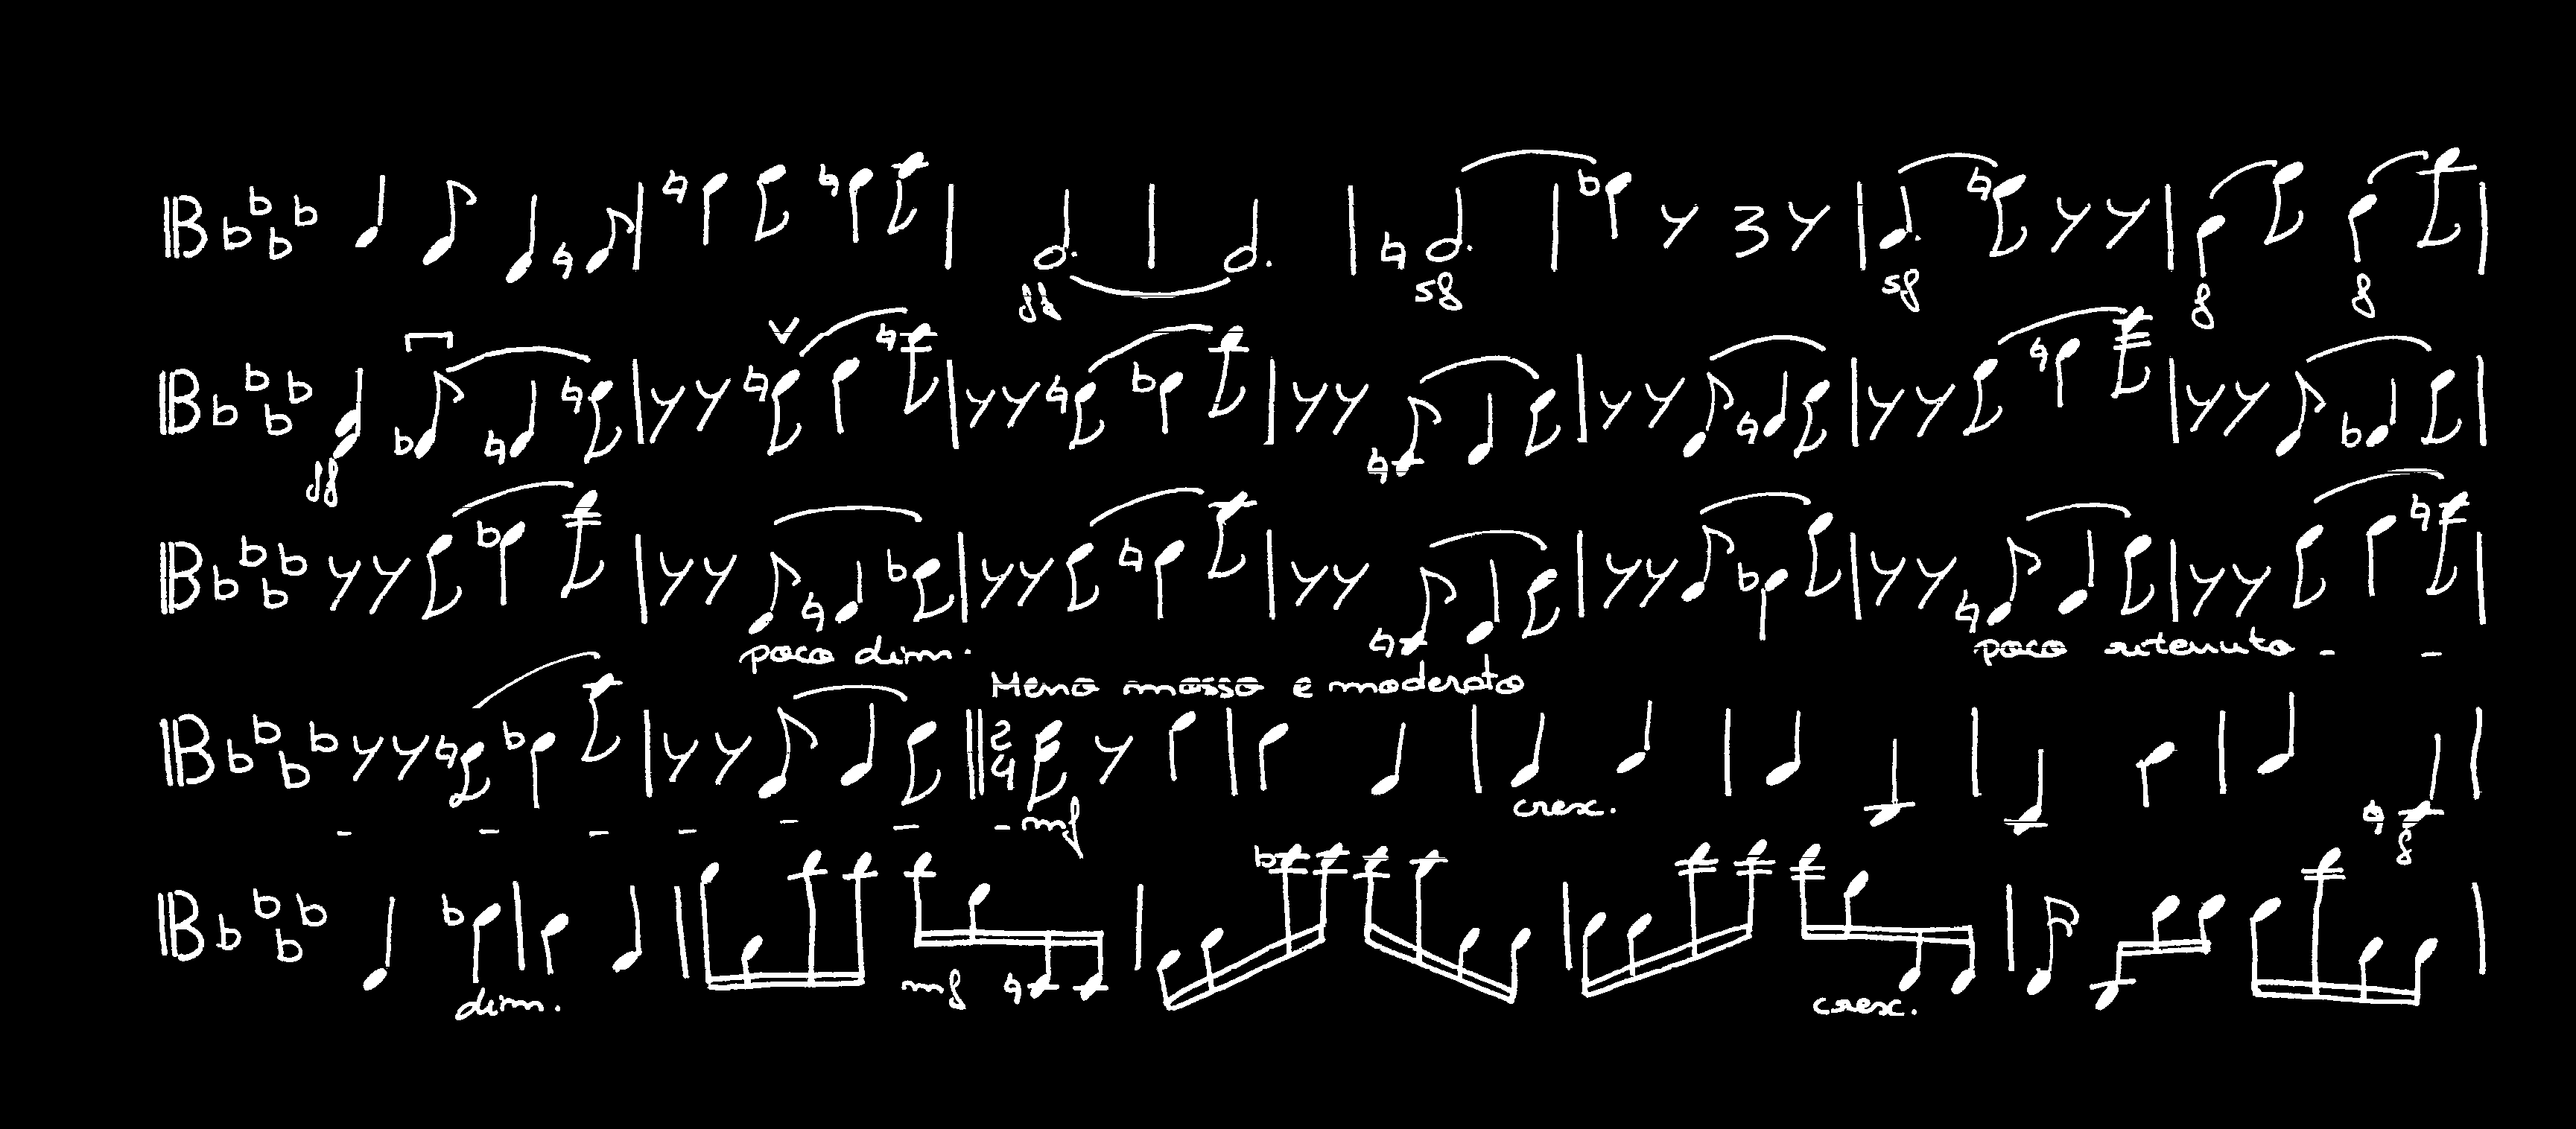 ff sf sf f f
ff
poco dim. poco ritenuto - -
Meno mosso e moderato
2 4
cresc.
- - - - - - - mf f
mf
dim. cresc.